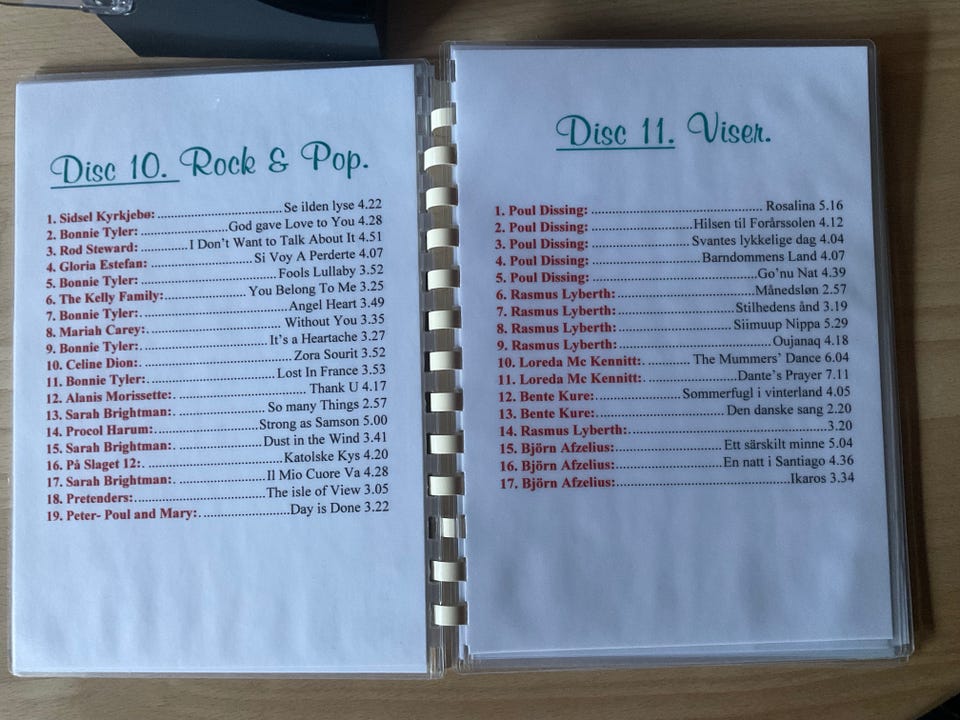 Disc 10. Rock & Pop.
1. Sidsel Kyrkjebø: Se ilden lyse 4.22
2. Bonnie Tyler: God gave Love to You 4.28
3. Rod Steward: I Don't Want to Talk About It 4.51
4. Gloria Estefan: Si Voy A Perderte 4.07
5. Bonnie Tyler: Fools Lullaby 3.52
6. The Kelly Family: You Belong To Me 3.25
7. Bonnie Tyler: Angel Heart 3.49
8. Mariah Carey: Without You 3.35
9. Bonnie Tyler: It's a Heartache 3.27
10. Celine Dion: Zora Sourit 3.52
11. Bonnie Tyler: Lost In France 3.53
12. Alanis Morissette: Thank U 4.17
13. Sarah Brightman: So many Things 2.57
14. Procol Harum: Strong as Samson 5.00
15. Sarah Brightman: Dust in the Wind 3.41
16. På Slaget 12: Katolske Kys 4.20
17. Sarah Brightman: Il Mio Cuore Va 4.28
18. Pretenders: The isle of View 3.05
19. Peter- Poul and Mary: Day is Done 3.22
Disc 11. Viser.
1. Poul Dissing: Rosalina 5.16
2. Poul Dissing: Hilsen til Forårssolen 4.12
3. Poul Dissing: Svantes lykkelige dag 4.04
4. Poul Dissing: Barndommens Land 4.07
5. Poul Dissing: Go'nu Nat 4.39
6. Rasmus Lyberth: Månedsløn 2.57
7. Rasmus Lyberth: Stilhedens ånd 3.19
8. Rasmus Lyberth: Siimuup Nippa 5.29
9. Rasmus Lyberth: Oujanaq 4.18
10. Loreda Mc Kennitt: The Mummers' Dance 6.04
11. Loreda Mc Kennitt: Dante's Prayer 7.11
12. Bente Kure: Sommerfugl i vinterland 4.05
13. Bente Kure: Den danske sang 2.20
14. Rasmus Lyberth: 3.20
15. Björn Afzelius: Ett särskilt minne 5.04
16. Björn Afzelius: En natt i Santiago 4.36
17. Björn Afzelius: Ikaros 3.34